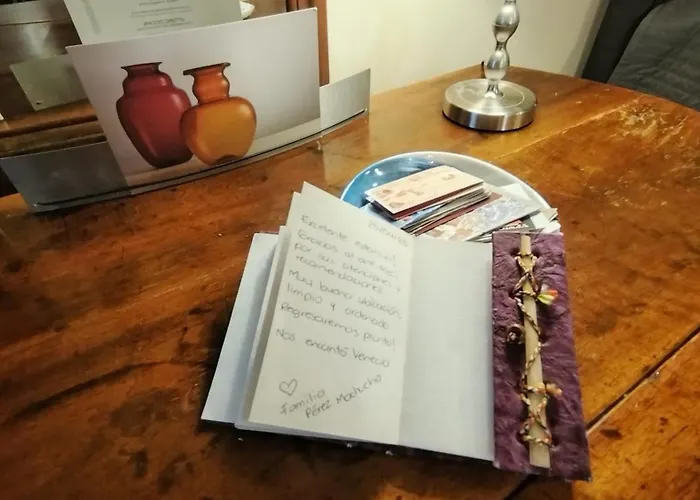 Excelente estancia!
Gracias
por sus atenciones y
recomendaciones
Muy buena ubicación,
limpio y ordenado
Regresaremos pronto!
Nos encantó Venecia
Familia
Pérez Machucho